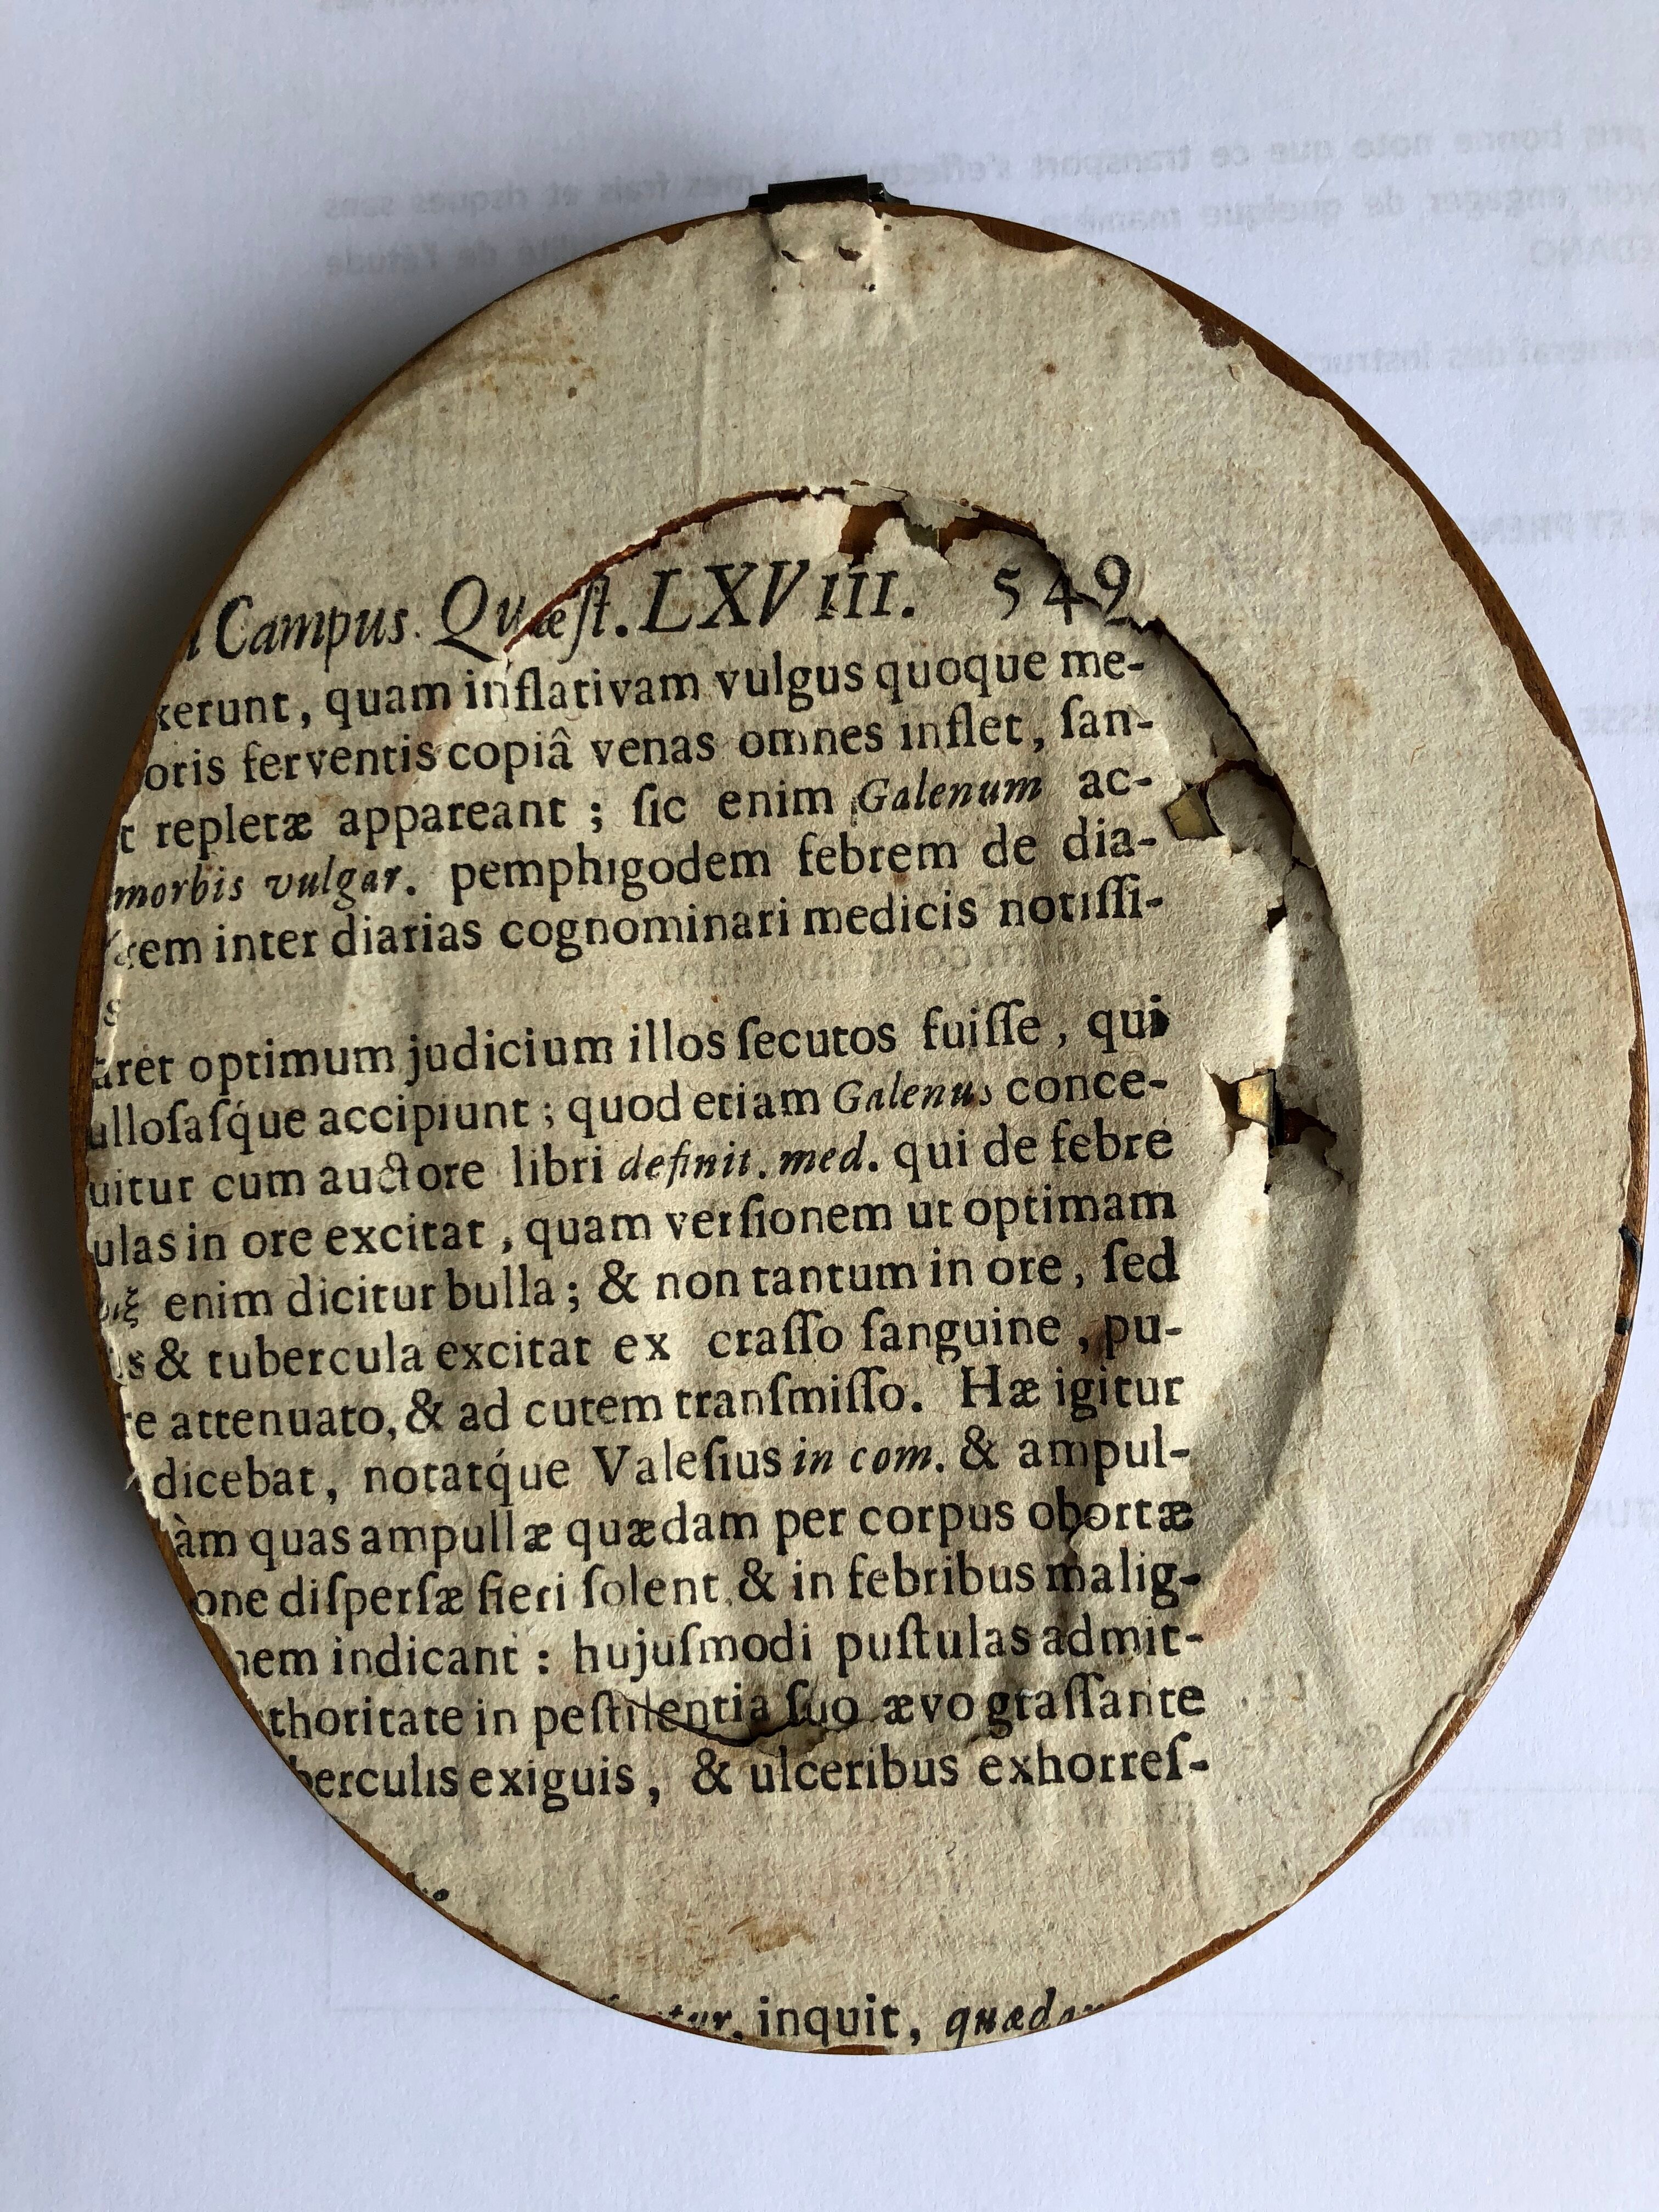 Campus. Quæſt. LXVIII. 549
xerunt, quam inflativam vulgus quoque me-
oris ferventis copiâ venas omnes inflet, ſan-
t repletæ appareant ; ſic enim Galenum ac-
morbis vulgar. pemphigodem febrem de dia-
rem inter diarias cognominari medicis notiſſi-
s
aret optimum judicium illos ſecutos fuiſſe, qui
ulloſaſq́ue accipiunt ; quod etiam Galenus conce-
uitur cum auctore libri definit. med. qui de febre
ulas in ore excitat, quam verſionem ut optimam
enim dicitur bulla ; & non tantum in ore, ſed
s & tubercula excitat ex craſſo ſanguine, pu-
e attenuato, & ad cutem tranſmiſſo. Hæ igitur
dicebat, notatq́ue Valeſius in com. & ampul-
àm quas ampullæ quædam per corpus obortæ
one diſperſæ fieri ſolent, & in febribus malig-
nem indicant : hujuſmodi puſtulas admit-
thoritate in peſtilentia ſuo ævo graſſante
berculis exiguis, & ulceribus exhorreſ-
inquit, quædam